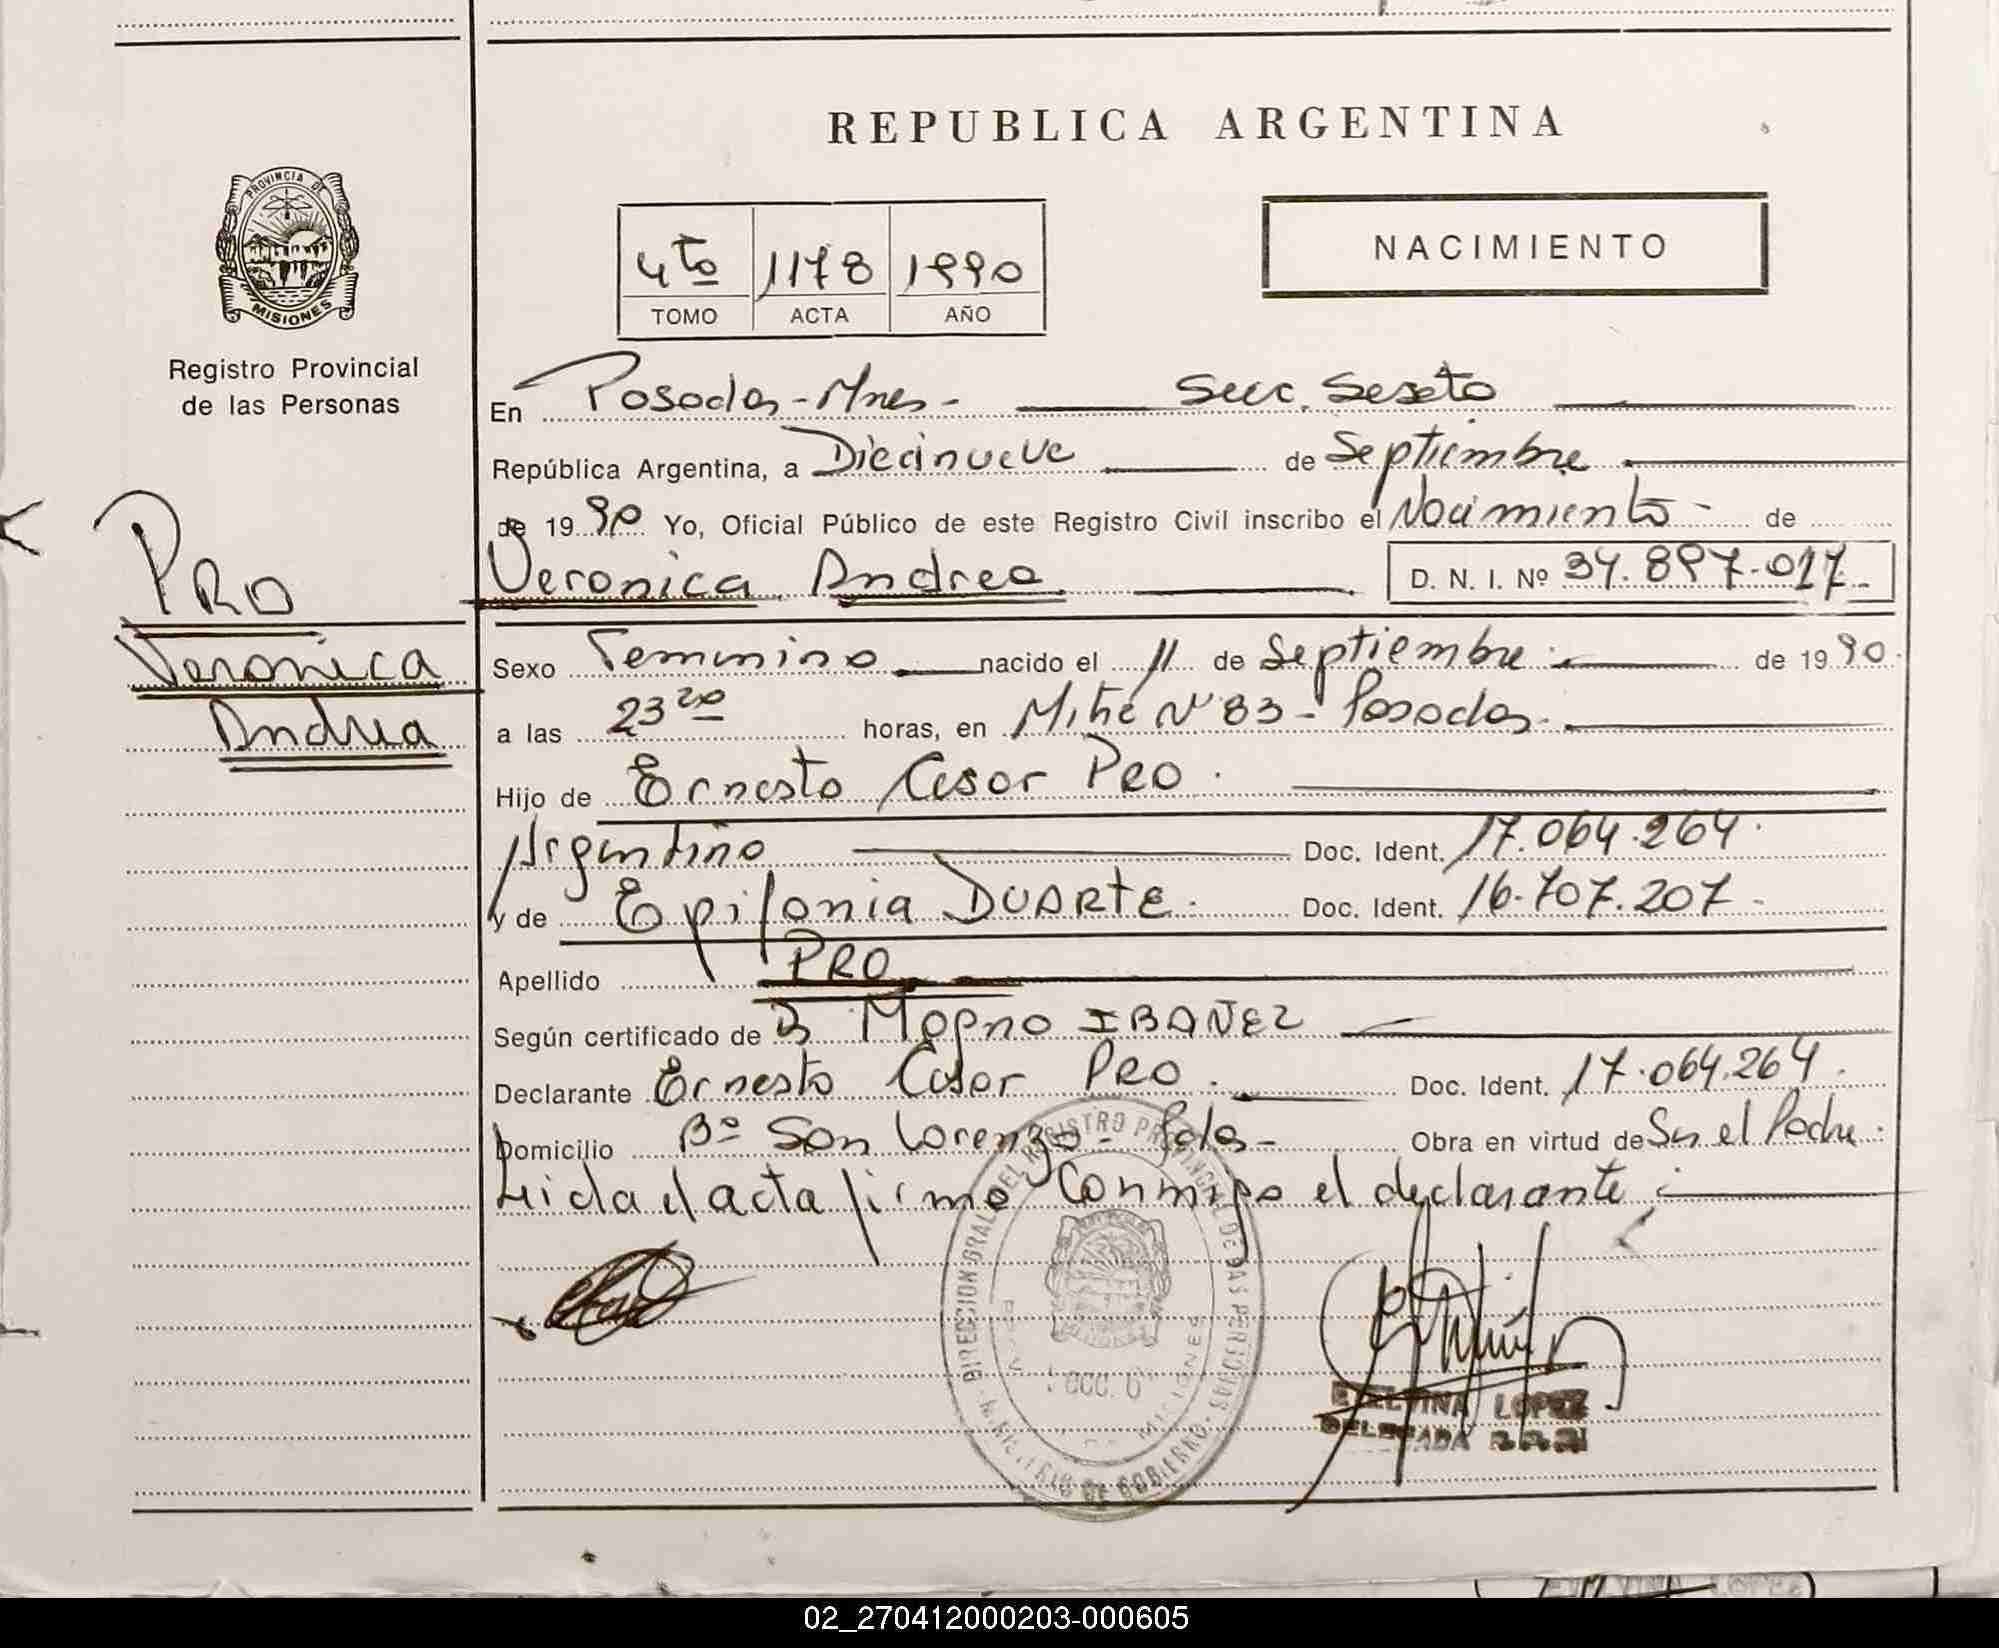 REPUBLICA ARGENTINA
PROVINCIA DE
MISIONES
Registro Provincial
de las Personas
4to 1178 1990
TOMO ACTA AÑO
NACIMIENTO
En Posadas - Mnes - Secc. Sexta
República Argentina, a Diecinueve de Septiembre
de 1990 Yo, Oficial Público de este Registro Civil inscribo el Nacimiento - de
Veronica Andrea D. N. I. Nº 34.897.017
PRO
Veronica
Andrea
Sexo Femenino nacido el 11 de Septiembre de 1990.
a las 23 20 horas, en Mitre Nº 83 - Posadas.
Hijo de Ernesto Cesar PRO.
Argentino Doc. Ident. 17.064.264.
y de Epifania DUARTE. Doc. Ident. 16.707.207.
Apellido PRO
Según certificado de IBAÑEZ
Declarante Ernesto Cesar PRO. Doc. Ident. 17.064.264.
Domicilio Bº San Lorenzo - Pdas - Obra en virtud de Ser el Padre.
Leida el acta firma conmigo el declarante
DIRECCION GRAL. DEL REGISTRO PROVINCIAL DE LAS PERSONAS
MINISTERIO DE GOBIERNO
MISIONES
LOPEZ
DELEGADA
02_270412000203-000605